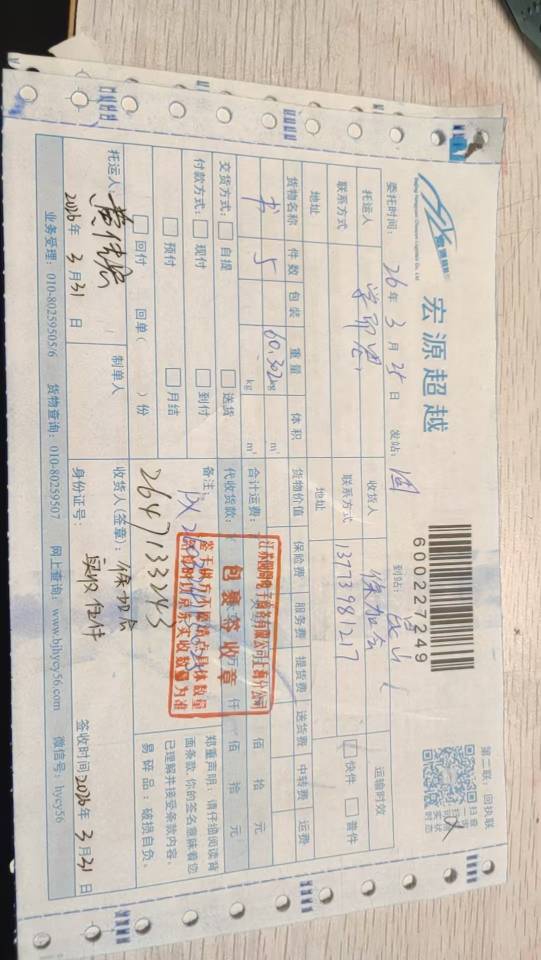 宏源超越
第二联：回执联
6000227249
委托时间：26年3月25日
发站：
到站：
托运人
收货人
运输时效
联系方式
联系方式 13773981217
快件 普件
地址
地址
货物名称 件数 包装 重量 体积 货物价值 保险费 服务费 提货费 送货费 中转费 运费
书 5 60.302kg m³
kg m³ 合计运费：
万 仟 佰 拾 元
交货方式： 自提 送货 代收货款：
仟 佰 拾 元
付款方式： 现付 到付 备注：
预付 月结
回付 回单（ ）份
2647133243
包裹签收章
江苏 电子商务有限公司上海分公司
实收数量为准
郑重声明：请仔细阅读背
面条款，你的签名意味着您
已理解并接受条款内容。
易碎品：破损自负。
托运人：
制单人
收货人（签章）：
2026年3月31日
身份证号：
实收 件
签收时间2026年3月31日
业务受理：010-80259505/6 货物查询：010-80259507 网上查询：www.bjhycy56.com 微信号：hycy56